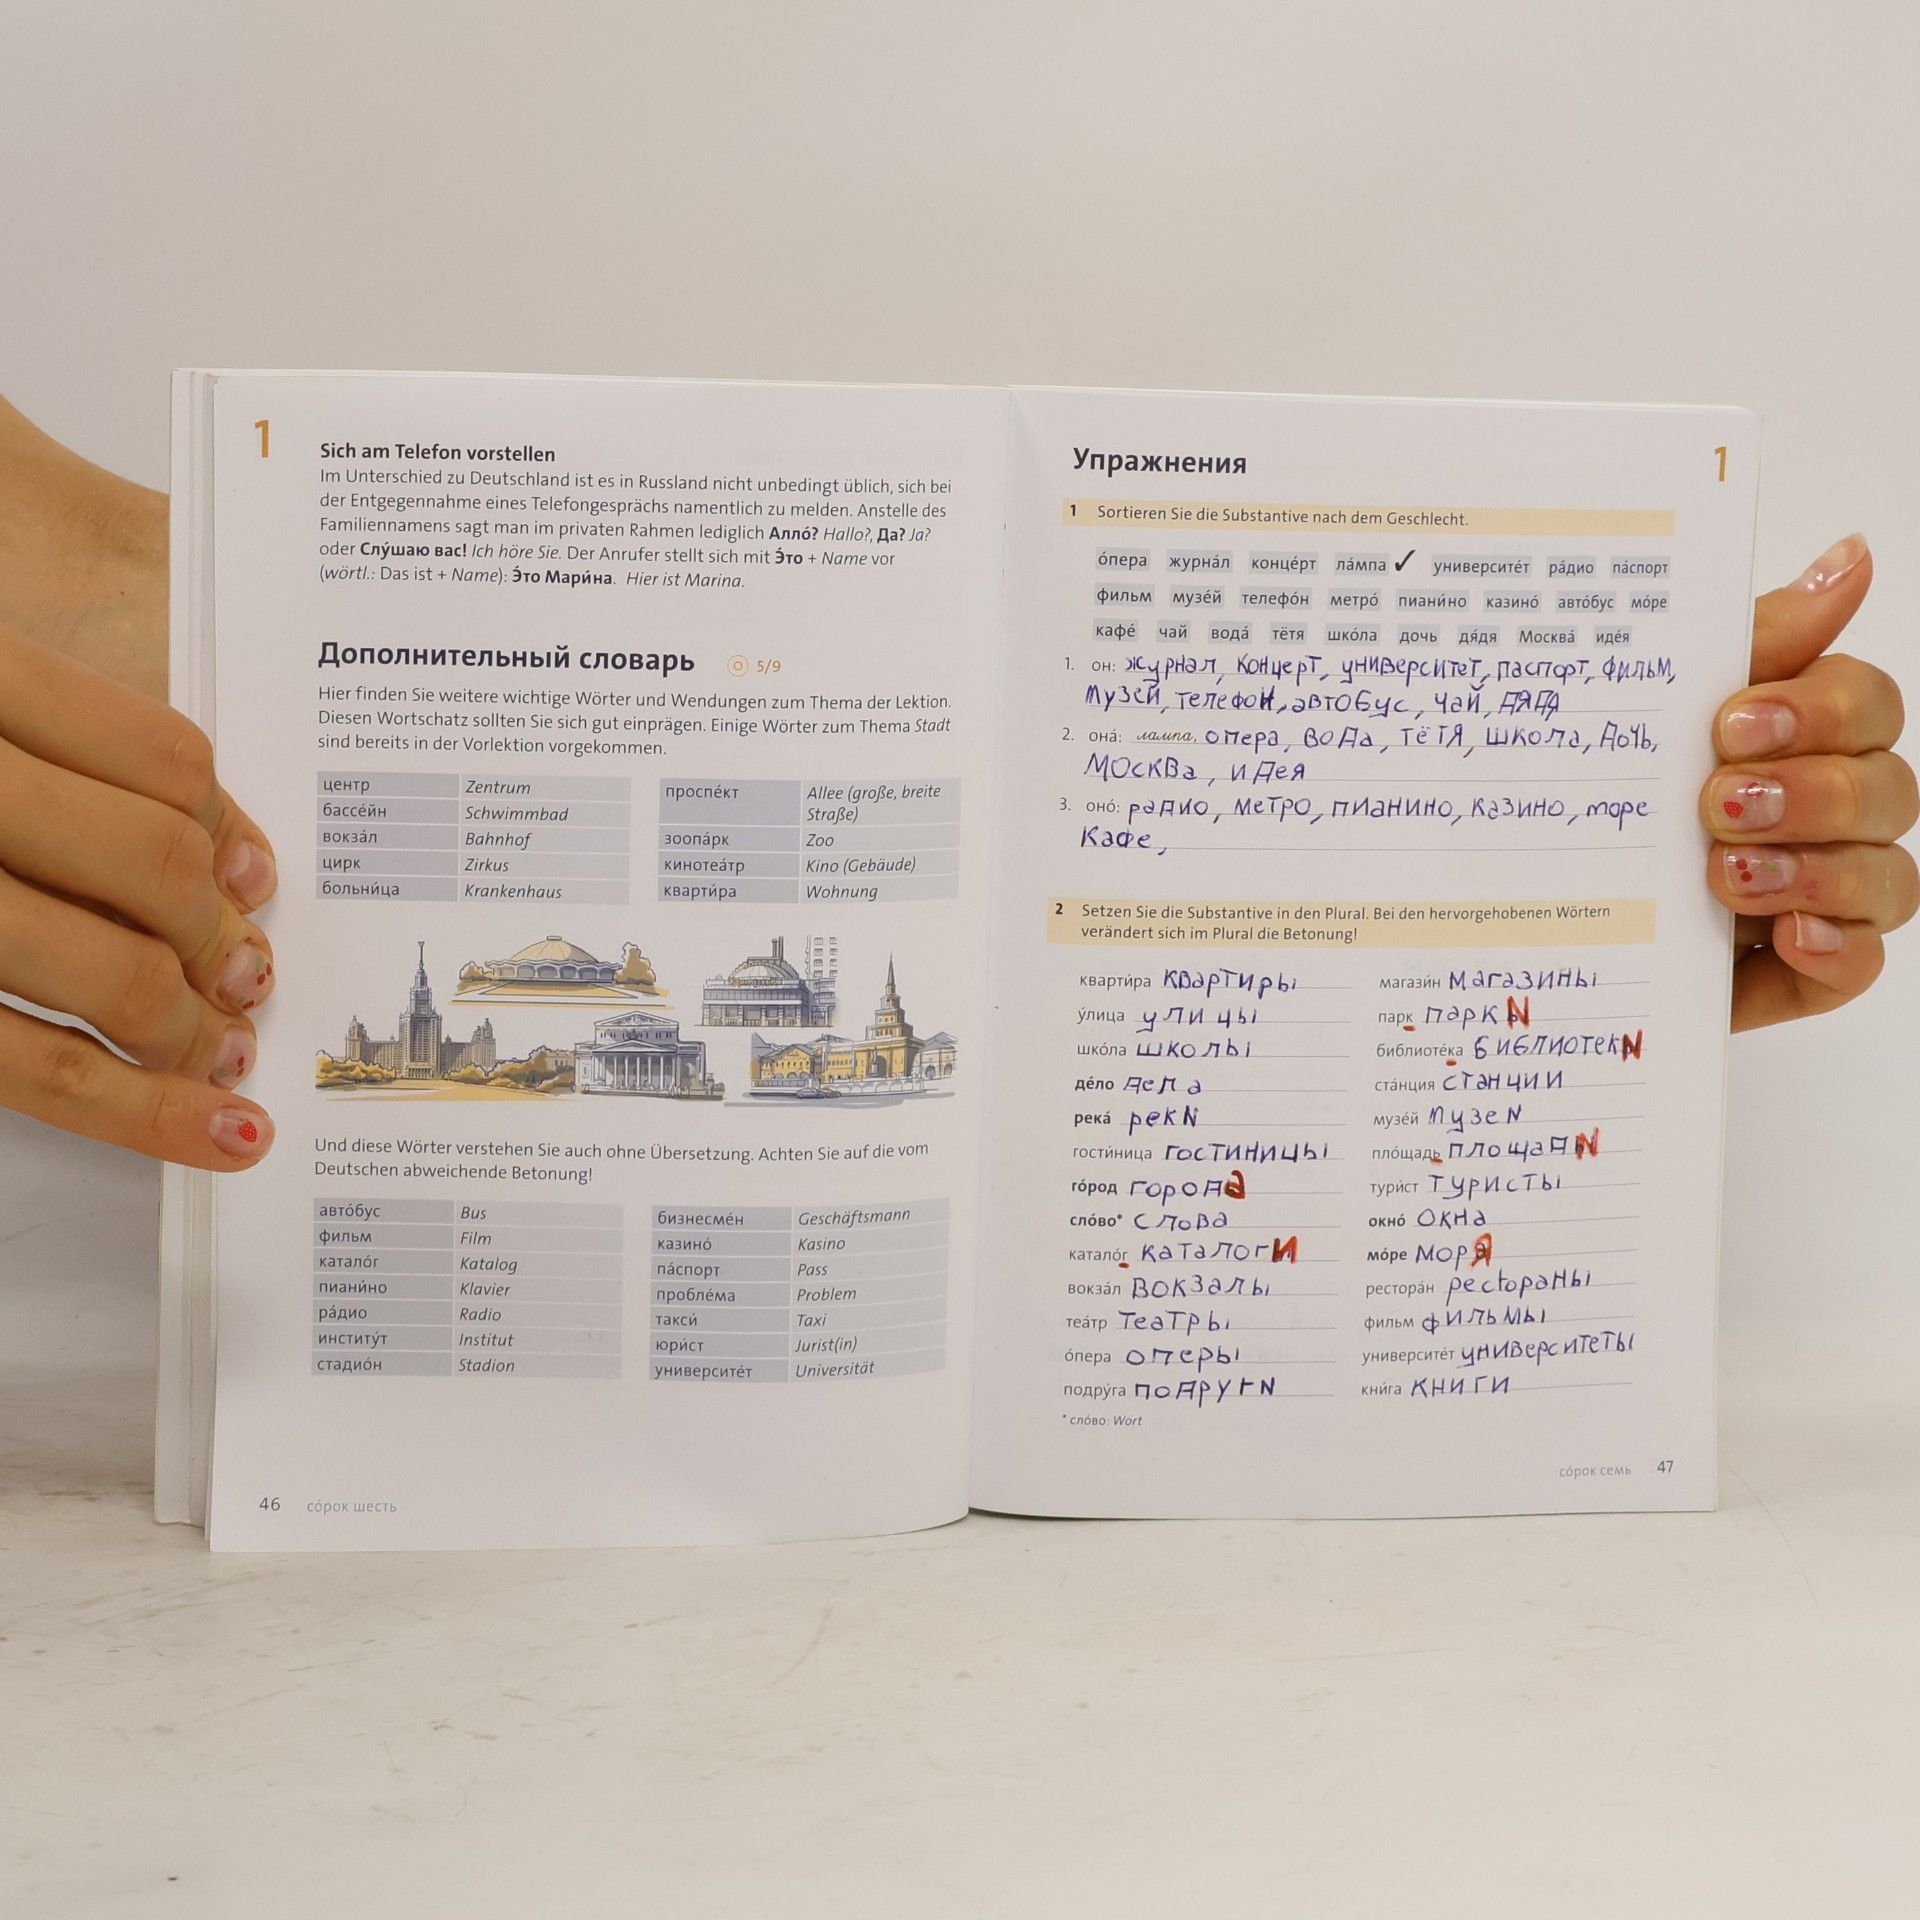 1
Sich am Telefon vorstellen
Im Unterschied zu Deutschland ist es in Russland nicht unbedingt üblich, sich bei
der Entgegennahme eines Telefongesprächs namentlich zu melden. Anstelle des
Familiennamens sagt man im privaten Rahmen lediglich Алло́? Hallo?, Да? Ja?
oder Слу́шаю вас! Ich höre Sie. Der Anrufer stellt sich mit Э́то + Name vor
(wörtl.: Das ist + Name): Э́то Мари́на. Hier ist Marina.
Дополнительный словарь 5/9
Hier finden Sie weitere wichtige Wörter und Wendungen zum Thema der Lektion.
Diesen Wortschatz sollten Sie sich gut einprägen. Einige Wörter zum Thema Stadt
sind bereits in der Vorlektion vorgekommen.
центр Zentrum
бассе́йн Schwimmbad
вокза́л Bahnhof
цирк Zirkus
больни́ца Krankenhaus
проспе́кт Allee (große, breite
Straße)
зоопа́рк Zoo
кинотеа́тр Kino (Gebäude)
кварти́ра Wohnung
Und diese Wörter verstehen Sie auch ohne Übersetzung. Achten Sie auf die vom
Deutschen abweichende Betonung!
авто́бус Bus
фильм Film
катало́г Katalog
пиани́но Klavier
ра́дио Radio
институ́т Institut
стадио́н Stadion
бизнесме́н Geschäftsmann
казино́ Kasino
па́спорт Pass
пробле́ма Problem
такси́ Taxi
юри́ст Jurist(in)
университе́т Universität
46 со́рок шесть
Упражнения
1
1 Sortieren Sie die Substantive nach dem Geschlecht.
о́пера журна́л конце́рт ла́мпа ✓ университе́т ра́дио па́спорт
фильм музе́й телефо́н метро́ пиани́но казино́ авто́бус мо́ре
кафе́ чай вода́ тётя шко́ла дочь дя́дя Москва́ иде́я
1. он: журнал, концерт, университет, паспорт, фильм,
музей, телефон, автобус, чай, дядя
2. она́: лампа, опера, вода, тётя, школа, дочь,
Москва, идея
3. оно́: радио, метро, пианино, казино, море
кафе,
2 Setzen Sie die Substantive in den Plural. Bei den hervorgehobenen Wörtern
verändert sich im Plural die Betonung!
кварти́ра квартиры
у́лица улицы
шко́ла школы
де́ло дела
река́ реки
гости́ница гостиницы
го́род города
сло́во* слова
катало́г каталоги
вокза́л вокзалы
теа́тр театры
о́пера оперы
подру́га подруги
* сло́во: Wort
магази́н магазины
парк парки
библиоте́ка библиотеки
ста́нция станции
музе́й музеи
пло́щадь площади
тури́ст туристы
окно́ окна
мо́ре моря
рестора́н рестораны
фильм фильмы
университе́т университеты
кни́га книги
со́рок семь 47